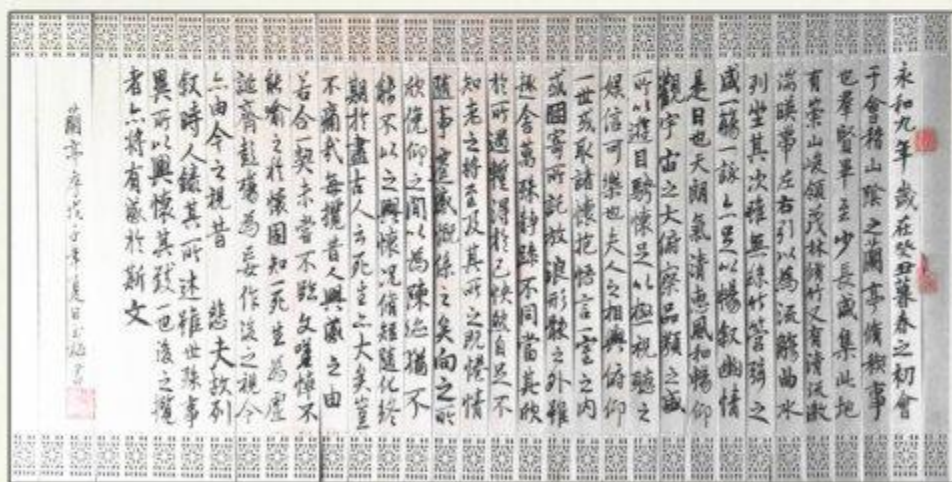 永和九年歲在癸丑暮春之初會
于會稽山陰之蘭亭脩稧事
也羣賢畢至少長咸集此地
有崇山峻領茂林脩竹又有清流激
湍暎帶左右引以為流觴曲水
列坐其次雖無絲竹管弦之
盛一觴一詠亦足以暢叙幽情
是日也天朗氣清惠風和暢仰
觀宇宙之大俯察品類之盛
所以遊目騁懷足以極視聽之
娛信可樂也夫人之相與俯仰
一世或取諸懷抱悟言一室之內
或因寄所託放浪形骸之外雖
趣舍萬殊靜躁不同當其欣
於所遇蹔得於己怏然自足不
知老之將至及其所之既惓情
隨事遷感慨係之矣向之所
欣俛仰之間以為陳迹猶不
能不以之興懷況脩短隨化終
期於盡古人云死生亦大矣豈
不痛哉每攬昔人興感之由
若合一契未嘗不臨文嗟悼不
能喻之於懷固知一死生為虛
誕齊彭殤為妄作後之視今
亦由今之視昔 悲夫故列
叙時人錄其所述雖世殊事
異所以興懷其致一也後之攬
者亦將有感於斯文
蘭亭序戊子年夏日書